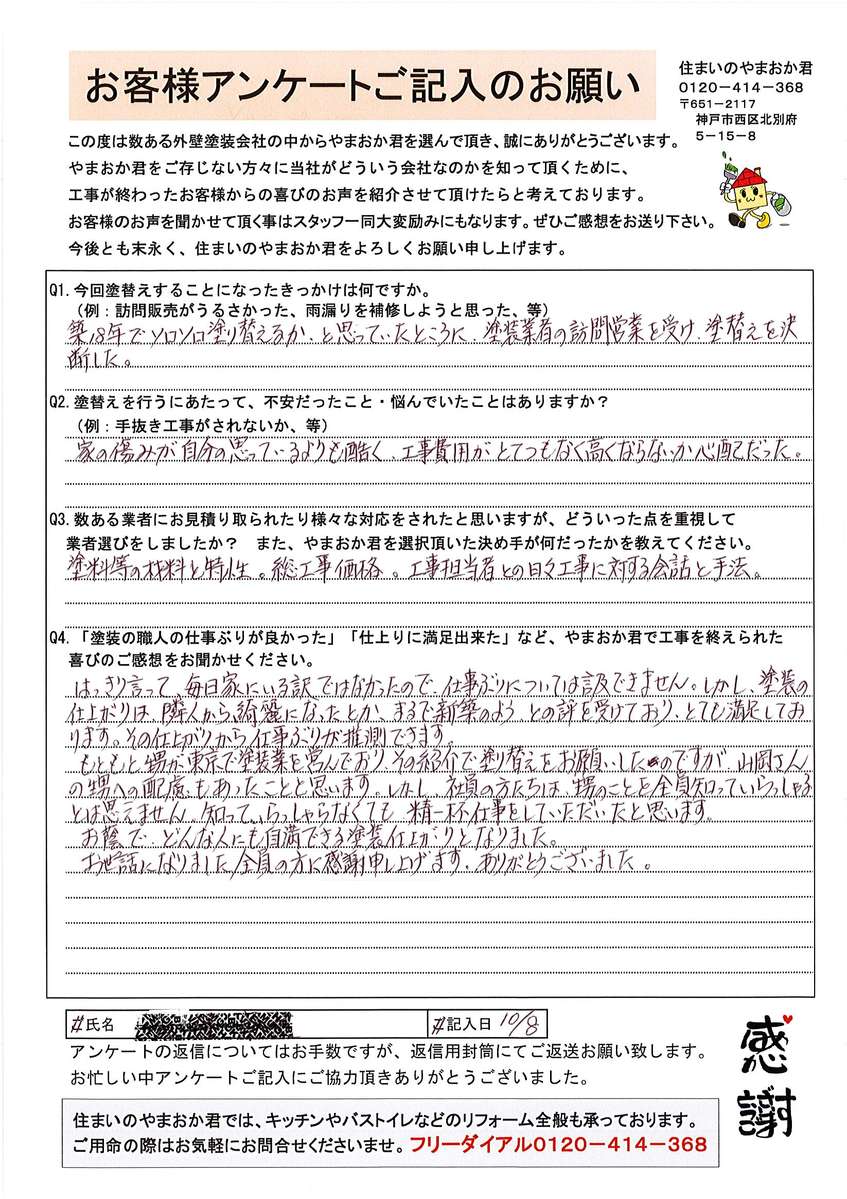 お客様アンケートご記入のお願い
住まいのやまおか君
0120－414－368
〒651－2117
神戸市西区北別府
5－15－8
この度は数ある外壁塗装会社の中からやまおか君を選んで頂き、誠にありがとうございます。
やまおか君をご存じない方々に当社がどういう会社なのかを知って頂くために、
工事が終わったお客様からの喜びのお声を紹介させて頂けたらと考えております。
お客様のお声を聞かせて頂く事はスタッフ一同大変励みにもなります。ぜひご感想をお送り下さい。
今後とも末永く、住まいのやまおか君をよろしくお願い申し上げます。
Q1. 今回塗替えすることになったきっかけは何ですか。
（例：訪問販売がうるさかった、雨漏りを補修しようと思った、等）
築18年でソロソロ塗り替えるか、と思っていたところに、塗装業者の訪問営業を受け、塗替えを決
断した。
Q2. 塗替えを行うにあたって、不安だったこと・悩んでいたことはありますか？
（例：手抜き工事がされないか、等）
家の傷みが自分の思っているよりも酷く、工事費用がとてつもなく高くならないか心配だった。
Q3. 数ある業者にお見積り取られたり様々な対応をされたと思いますが、どういった点を重視して
業者選びをしましたか？　また、やまおか君を選択頂いた決め手が何だったかを教えてください。
塗料等の材料と特性。総工事価格。工事担当者との日々工事に対する会話と手法。
Q4. 「塗装の職人の仕事ぶりが良かった」「仕上りに満足出来た」など、やまおか君で工事を終えられた
喜びのご感想をお聞かせください。
はっきり言って、毎日家にいる訳ではなかったので、仕事ぶりについては言及できません。しかし、塗装の
仕上がりは、隣人から綺麗になったとか、まるで新築のよう、との評を受けており、とても満足してお
ります。その仕上がりから仕事ぶりが推測できます。
もともと甥が東京で塗装業を営んでおり、その紹介で塗り替えをお願いしたのですが、山岡さん
の甥への配慮もあったことと思います。しかし、社員の方たちは、甥のことを全員知っていらっしゃる
とは思えません。知っていらっしゃらなくても、精一杯仕事をしていただいたと思います。
お蔭で、どんな人にも自満できる塗装仕上がりとなりました。
お世話になりました全員の方に感謝申し上げます。ありがとうございました。
氏名
記入日 10/8
アンケートの返信についてはお手数ですが、返信用封筒にてご返送お願い致します。
お忙しい中アンケートご記入にご協力頂きありがとうございました。
感謝
住まいのやまおか君では、キッチンやバストイレなどのリフォーム全般も承っております。
ご用命の際はお気軽にお問合せくださいませ。フリーダイアル0120－414－368